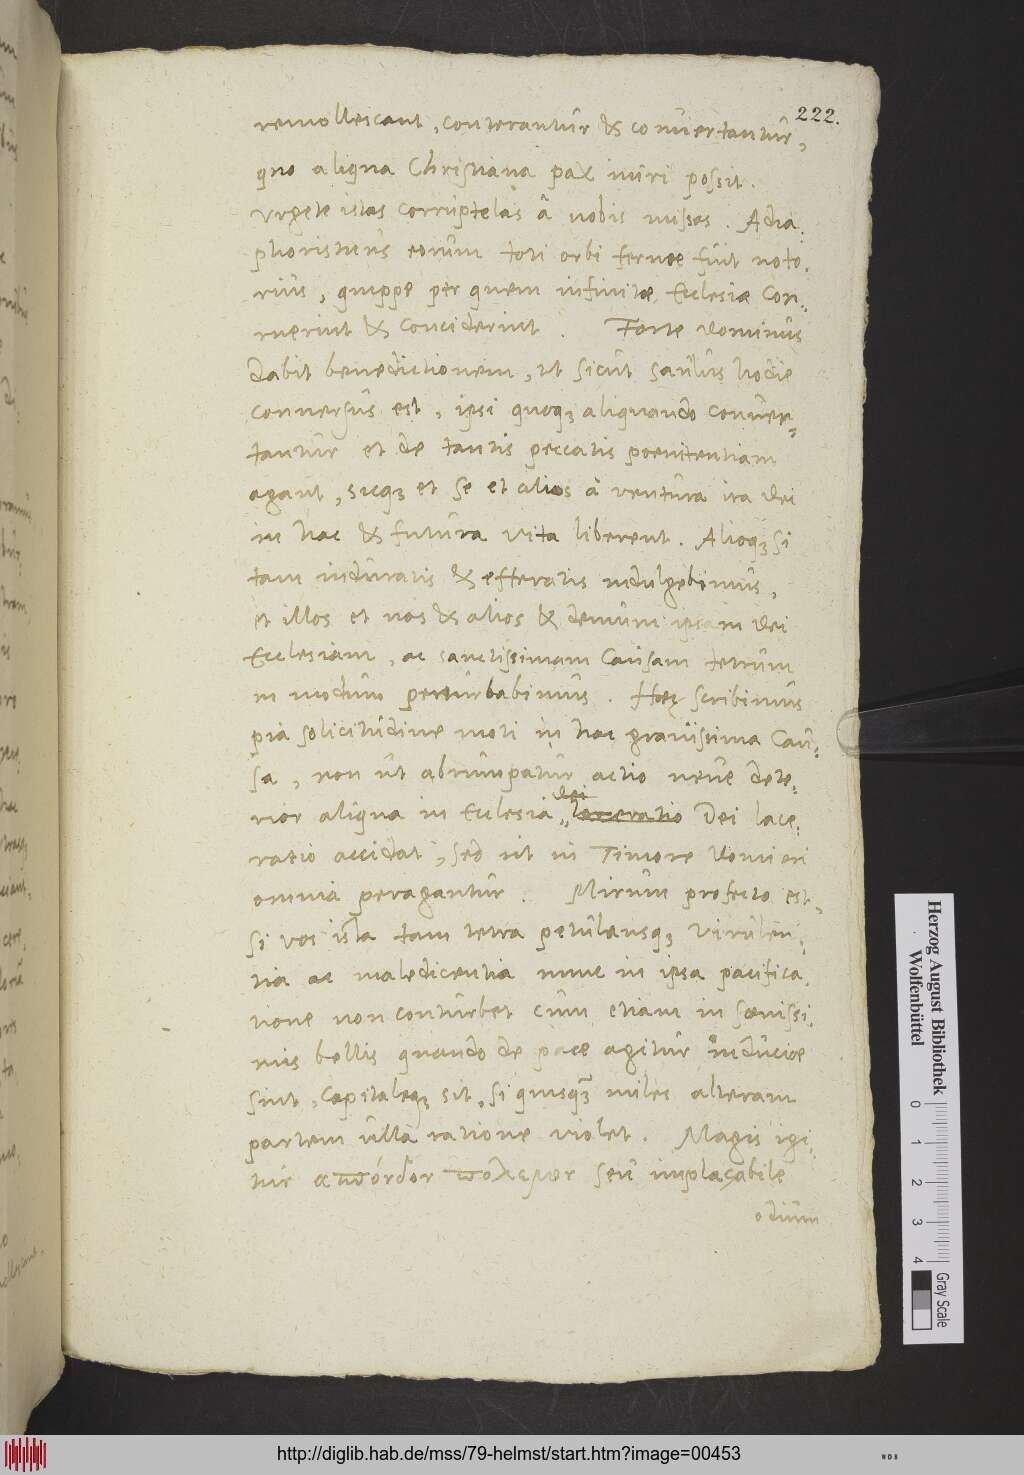 222.
remollescant, conterantur & convertantur,
quo aliqua Christiana pax iniri possit.
Urgete istas corruptelas à vobis missas. Adia:
phorismus eorum toti orbi ferme fuit noto:
rius, quippe per quem infinitae Ecclesiae Cor:
ruerint & conciderint. Forte Dominus
dabit benedictionem, ut sicut Saulus hodie
conversus est, ipsi quoqꝫ aliquando conver:
tantur et de tantis peccatis poenitentiam
agant, sicqꝫ et se et alios à ventura ira Dei
in hac & futura vita liberent. Alioqꝫ si
tam induratis & efferatis indulgebimus,
et illos et nos & alios & demum ipsam Dei
Ecclesiam, ac sanctissimam Causam tetrum
in modum perturbabimus. Haec scribimus
pia solicitudine moti in hac gravissima Cau:
sa, non ut abrumpatur actio neve dete:
rior aliqua in Ecclesia Dei lace:
ratio accidat, sed ut in Timore Domini
omnia peragantur. Mirum profecto est,
si vos ista tam tetra petulansqꝫ virulen:
tia ac maledicentia nunc in ipsa pacifica:
tione non conturbet cum etiam in saevissi:
mis bellis quando de pace agitur induciae
sint, Capitaleqꝫ sit, si quisquā miles alteram
partem ulla ratione violet. Magis igi:
tur ἄσπονδον πόλεμον seu implacabile
odium
Herzog August Bibliothek
Wolfenbüttel
0 1 2 3 4
Gray Scale
http://diglib.hab.de/mss/79-helmst/start.htm?image=00453